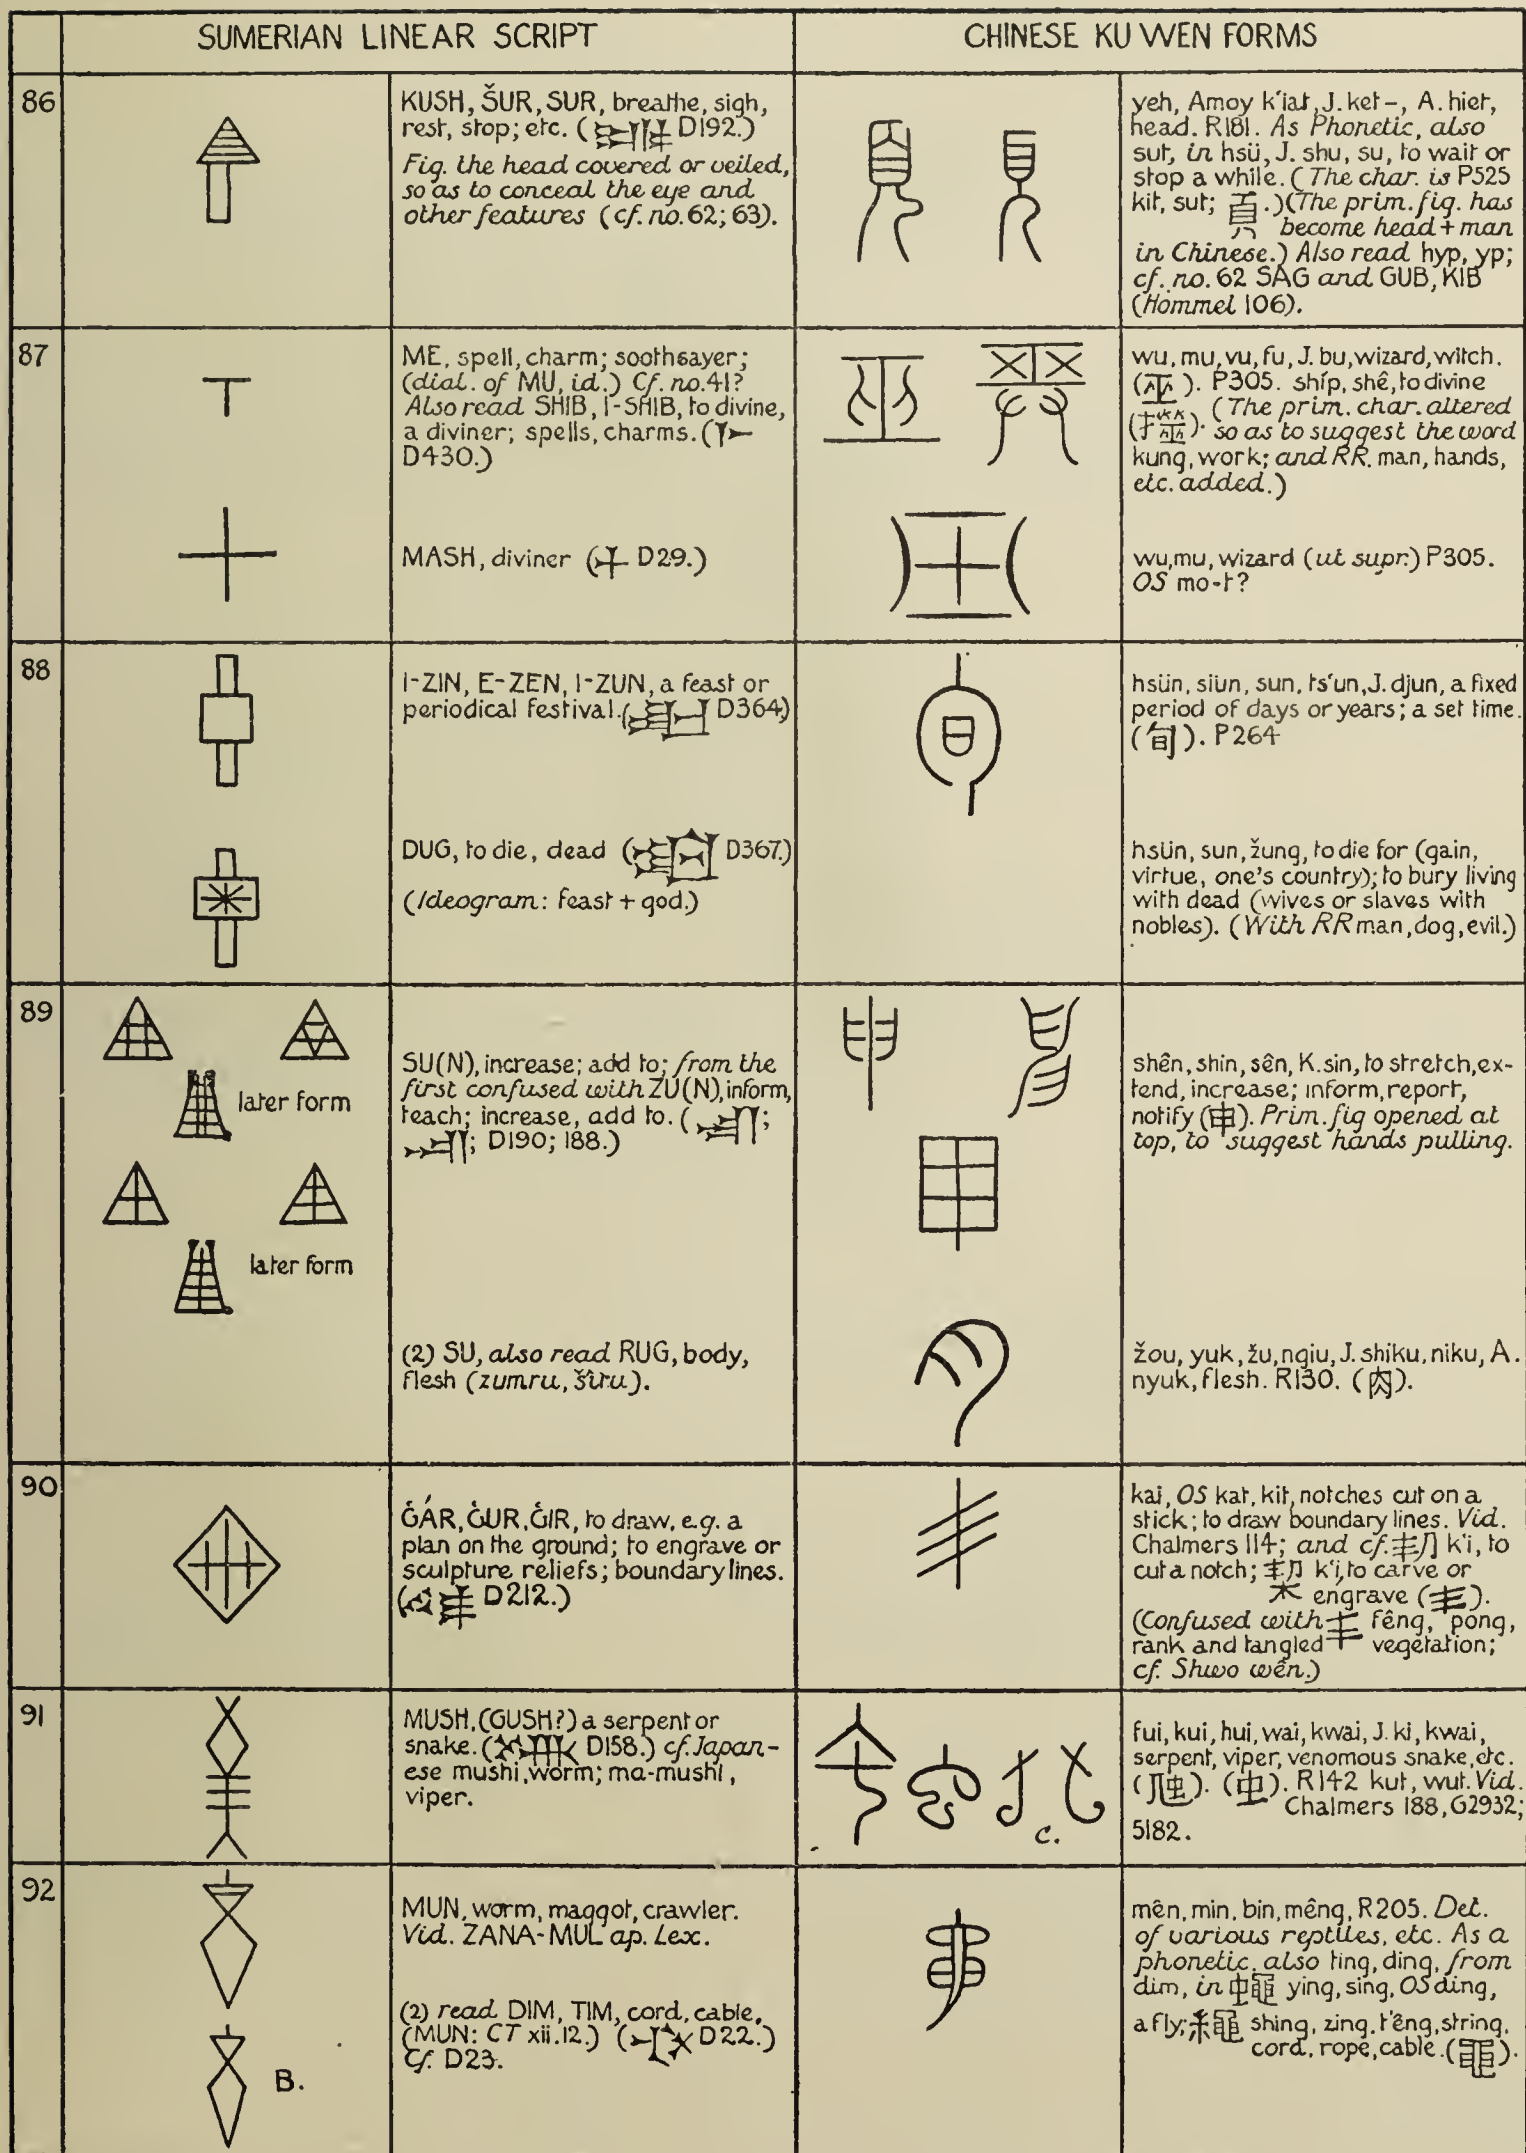 SUMERIAN LINEAR SCRIPT
CHINESE KU WEN FORMS
86
KUSH, ŠUR, SUR, breathe, sigh,
rest, stop; etc. ( D192.)
Fig. the head covered or veiled,
so as to conceal the eye and
other features (cf. no. 62; 63).
yeh, Amoy k'iat, J. ket-, A. hiet,
head. R181. As Phonetic, also
sut, in hsü, J. shu, su, to wait or
stop a while. (The char. is P525
kit, sut; 頁.) (The prim. fig. has
become head + man
in Chinese.) Also read hyp, yp;
cf. no. 62 SAG and GUB, KIB
(Hommel 106).
87
ME, spell, charm; soothsayer;
(dial. of MU, id.) Cf. no. 41?
Also read SHIB, I-SHIB, to divine,
a diviner; spells, charms. (
D430.)
wu, mu, vu, fu, J. bu, wizard, witch.
(巫). P305. ship, shê, to divine
(). (The prim. char. altered
so as to suggest the word
kung, work; and RR. man, hands,
etc. added.)
MASH, diviner ( D29.)
wu, mu, wizard (ut supr.) P305.
OS mo-t?
88
I-ZIN, E-ZEN, I-ZUN, a feast or
periodical festival. ( D364)
hsün, siün, sun, ts'un, J. djun, a fixed
period of days or years; a set time.
(旬). P264
DUG, to die, dead ( D367.)
(Ideogram: feast + god.)
hsün, sun, žung, to die for (gain,
virtue, one's country); to bury living
with dead (wives or slaves with
nobles). (With RR man, dog, evil.)
89
later form
later form
SU(N), increase; add to; from the
first confused with ZU(N), inform,
teach; increase, add to. ( ;
; D190; 188.)
shên, shin, sên, K. sin, to stretch, ex-
tend, increase; inform, report,
notify (申). Prim. fig opened at
top, to suggest hands pulling.
(2) SU, also read RUG, body,
flesh (zumru, šîru).
žou, yuk, žu, ngiu, J. shiku, niku, A.
nyuk, flesh. R130. (肉).
90
ĠÁR, ĠUR, ĠIR, to draw, e.g. a
plan on the ground; to engrave or
sculpture reliefs; boundary lines.
( D212.)
kai, OS kat, kit, notches cut on a
stick; to draw boundary lines. Vid.
Chalmers 114; and cf. 㓞 k'i, to
cut a notch; 栔 k'i, to carve or
engrave (丯).
(Confused with 丰 fêng, pong,
rank and tangled vegetation;
cf. Shwo wên.)
91
MUSH, (GUSH?) a serpent or
snake. ( D158.) cf. Japan-
ese mushi, worm; ma-mushi,
viper.
C.
fui, kui, hui, wai, kwai, J. ki, kwai,
serpent, viper, venomous snake, etc.
(虺). (虫). R142 kut, wut. Vid.
Chalmers 188, G2932;
5182.
92
B.
MUN, worm, maggot, crawler.
Vid. ZANA-MUL ap. Lex.
(2) read DIM, TIM, cord, cable,
(MUN: CT xii. 12.) ( D22.)
Cf. D23.
mên, min, bin, mêng, R205. Det.
of various reptiles, etc. As a
phonetic, also ting, ding, from
dim, in 蠅 ying, sing, OS ding,
a fly; 繩 shing, zing, t'êng, string,
cord, rope, cable. (黽).